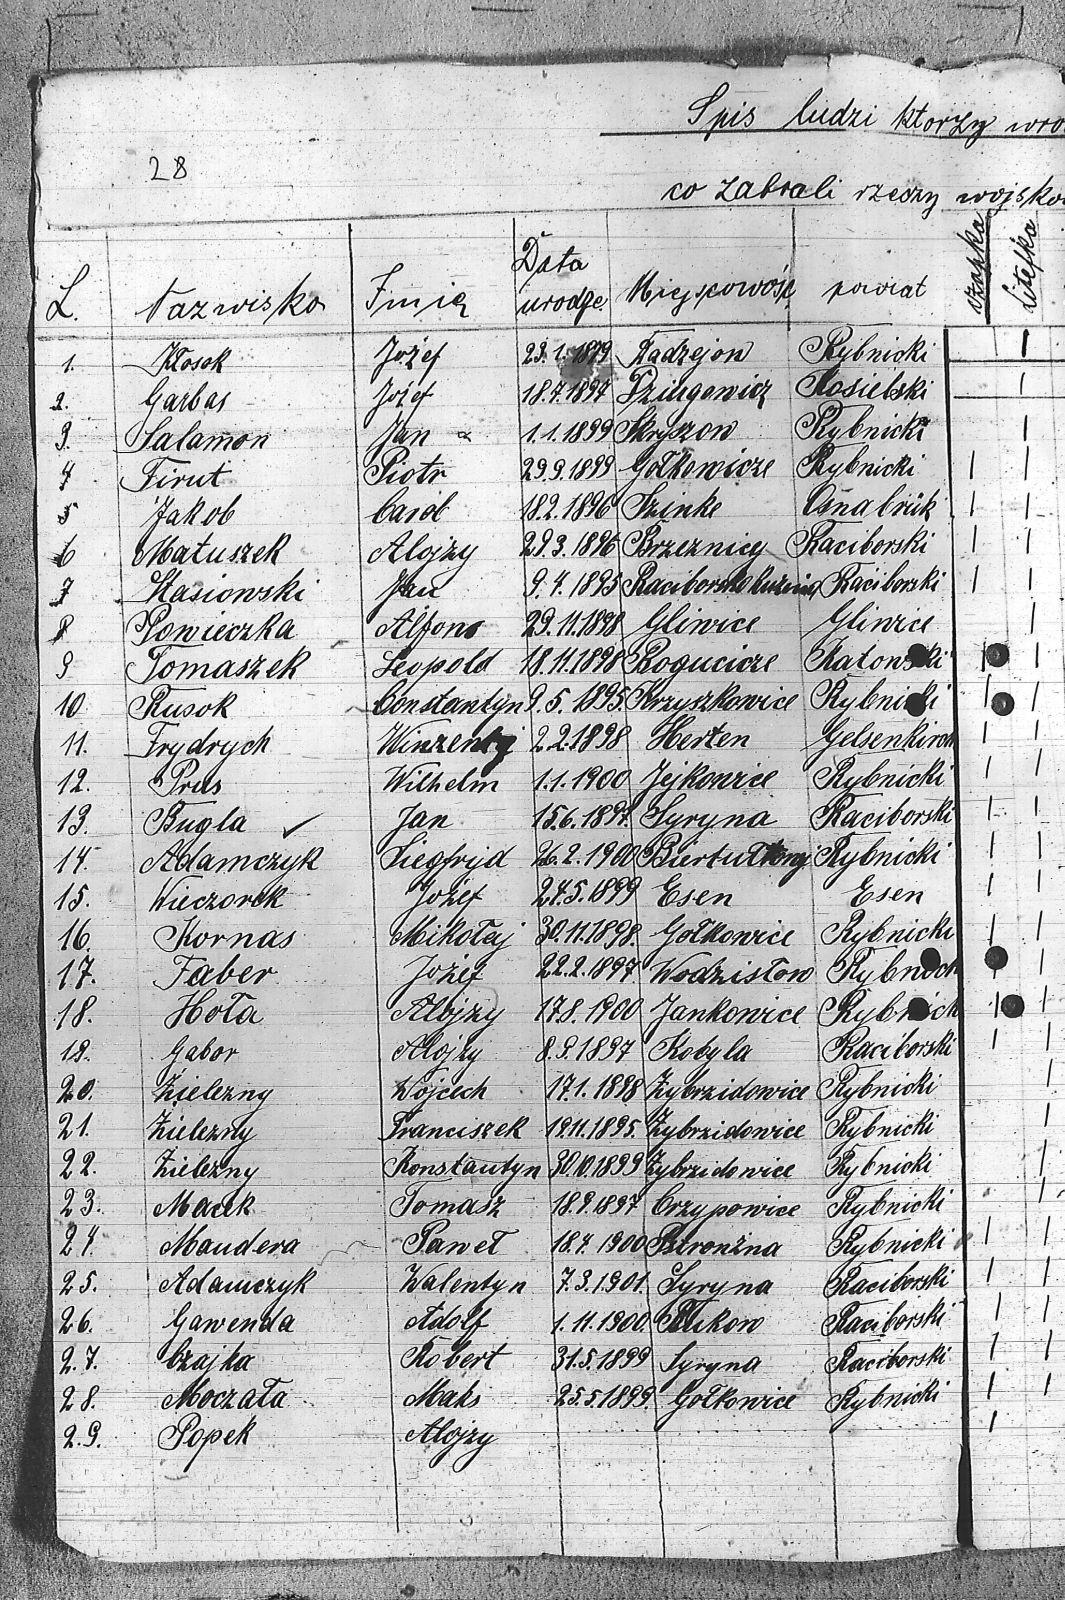 Spis ludzi ktorzy
28
co zabrali rzeczy
czapka Litefka
L. Nazwisko Imię Data urodze. Miejscowość powiat
1. Kłosok Jożef 23.1.1899 Radzejon Rybnicki
2. Garbas Jożef 18.7.1897 Dziergowicz Kosielski
3. Salamon Jan 1.1.1899 Skryszow Rybnicki
4 Firut Piotr 29.9.1899 Gołkowicze Rybnicki
5 Jakob Carol 18.2.1896 Szinke Osnabrük
6 Matuszek Alojzy 29.3.1896 Brzeznicy Raciborski
7 Stasiowski Jan 9.4.1895 Raciborsko Raciborski
8 Powieczka Alfons 29.11.1898 Gliwice Gliwice
9 Tomaszek Leopold 18.11.1898 Bogucicze
10 Rusok Constantyn 9.5.1895 Krzyszkowice Rybnicki
11. Frydrych Winzenty 2.2.1898 Herten Gelsenkirch
12. Prus Wilhelm 1.1.1900 Jejkowice Rybnicki
13. Bugla Jan 15.6.1897. Syryna Raciborski
14. Adamczyk Siegfryd 26.2.1900 Rybnicki
15. Wieczorek Jożef 24.5.1899 Esen Esen
16. Kornas Mikołaj 30.11.1898. Gołkowice Rybnicki
17. Faber Jożef 22.2.1897 Wodzisłow
18. Hoła Alojzy 17.8.1900 Jankowice
19. Gabor Alojzy 8.9.1897 Kobyla Raciborski
20. Zielezny Wojcech 17.1.1898 Zybrzidowice Rybnicki
21. Zielezny Franciszek 19.11.1895. Zybrzidowice Rybnicki
22. Zielezny Konstantyn 30.10.1899 Zybrzidowice Rybnicki
23. Macek Tomasz 18.9.1897 Crzypowice Rybnicki
24. Maudera Paweł 18.4.1900 Pstronżna Rybnicki
25. Adamczyk Walentyn 7.3.1901. Syryna Raciborski
26. Gawenda Adolf 1.11.1900 Raciborski
27. Czajka Robert 31.5.1899 Syryna Raciborski
28. Moczała Maks 25.5.1899. Gołkowice Rybnicki
29. Popek Alojzy